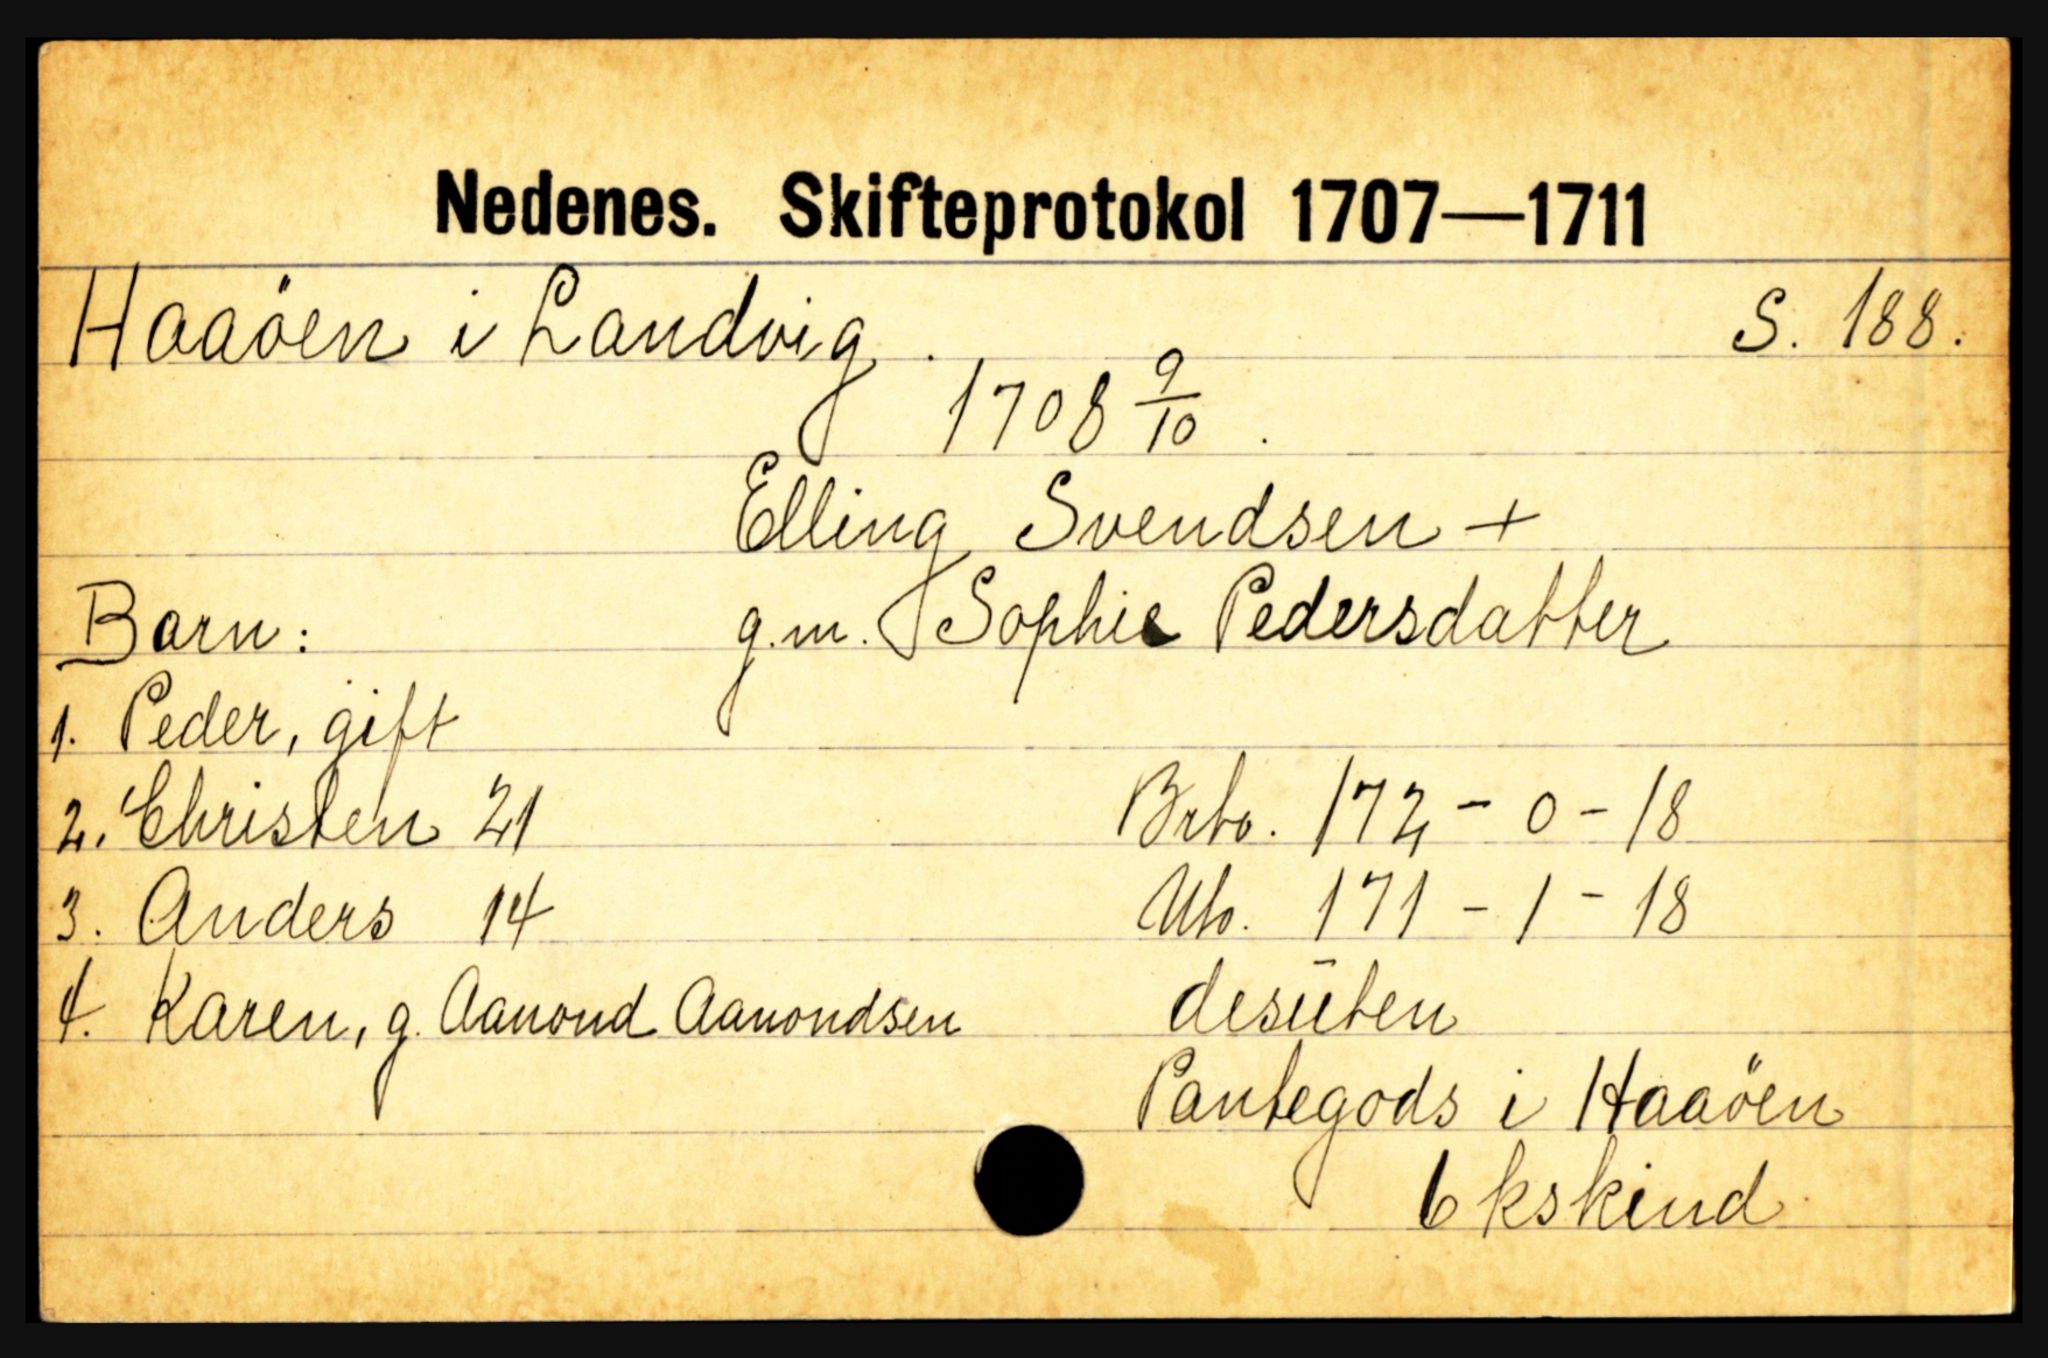 Nedenes. Skifteprotokol 1707—1711
Haaöen i Landvig. S. 188.
1708 9/10.
Elling Svendsen +
Barn: g.m. Sophie Pedersdatter
1. Peder, gift
2. Christen 21 Brto. 172 - 0 - 18
3. Anders 14 Nto. 171 - 1 - 18
4. Karen, g. Aanond Aanondsen desuten
Pantegods i Haaöen
6 kskind